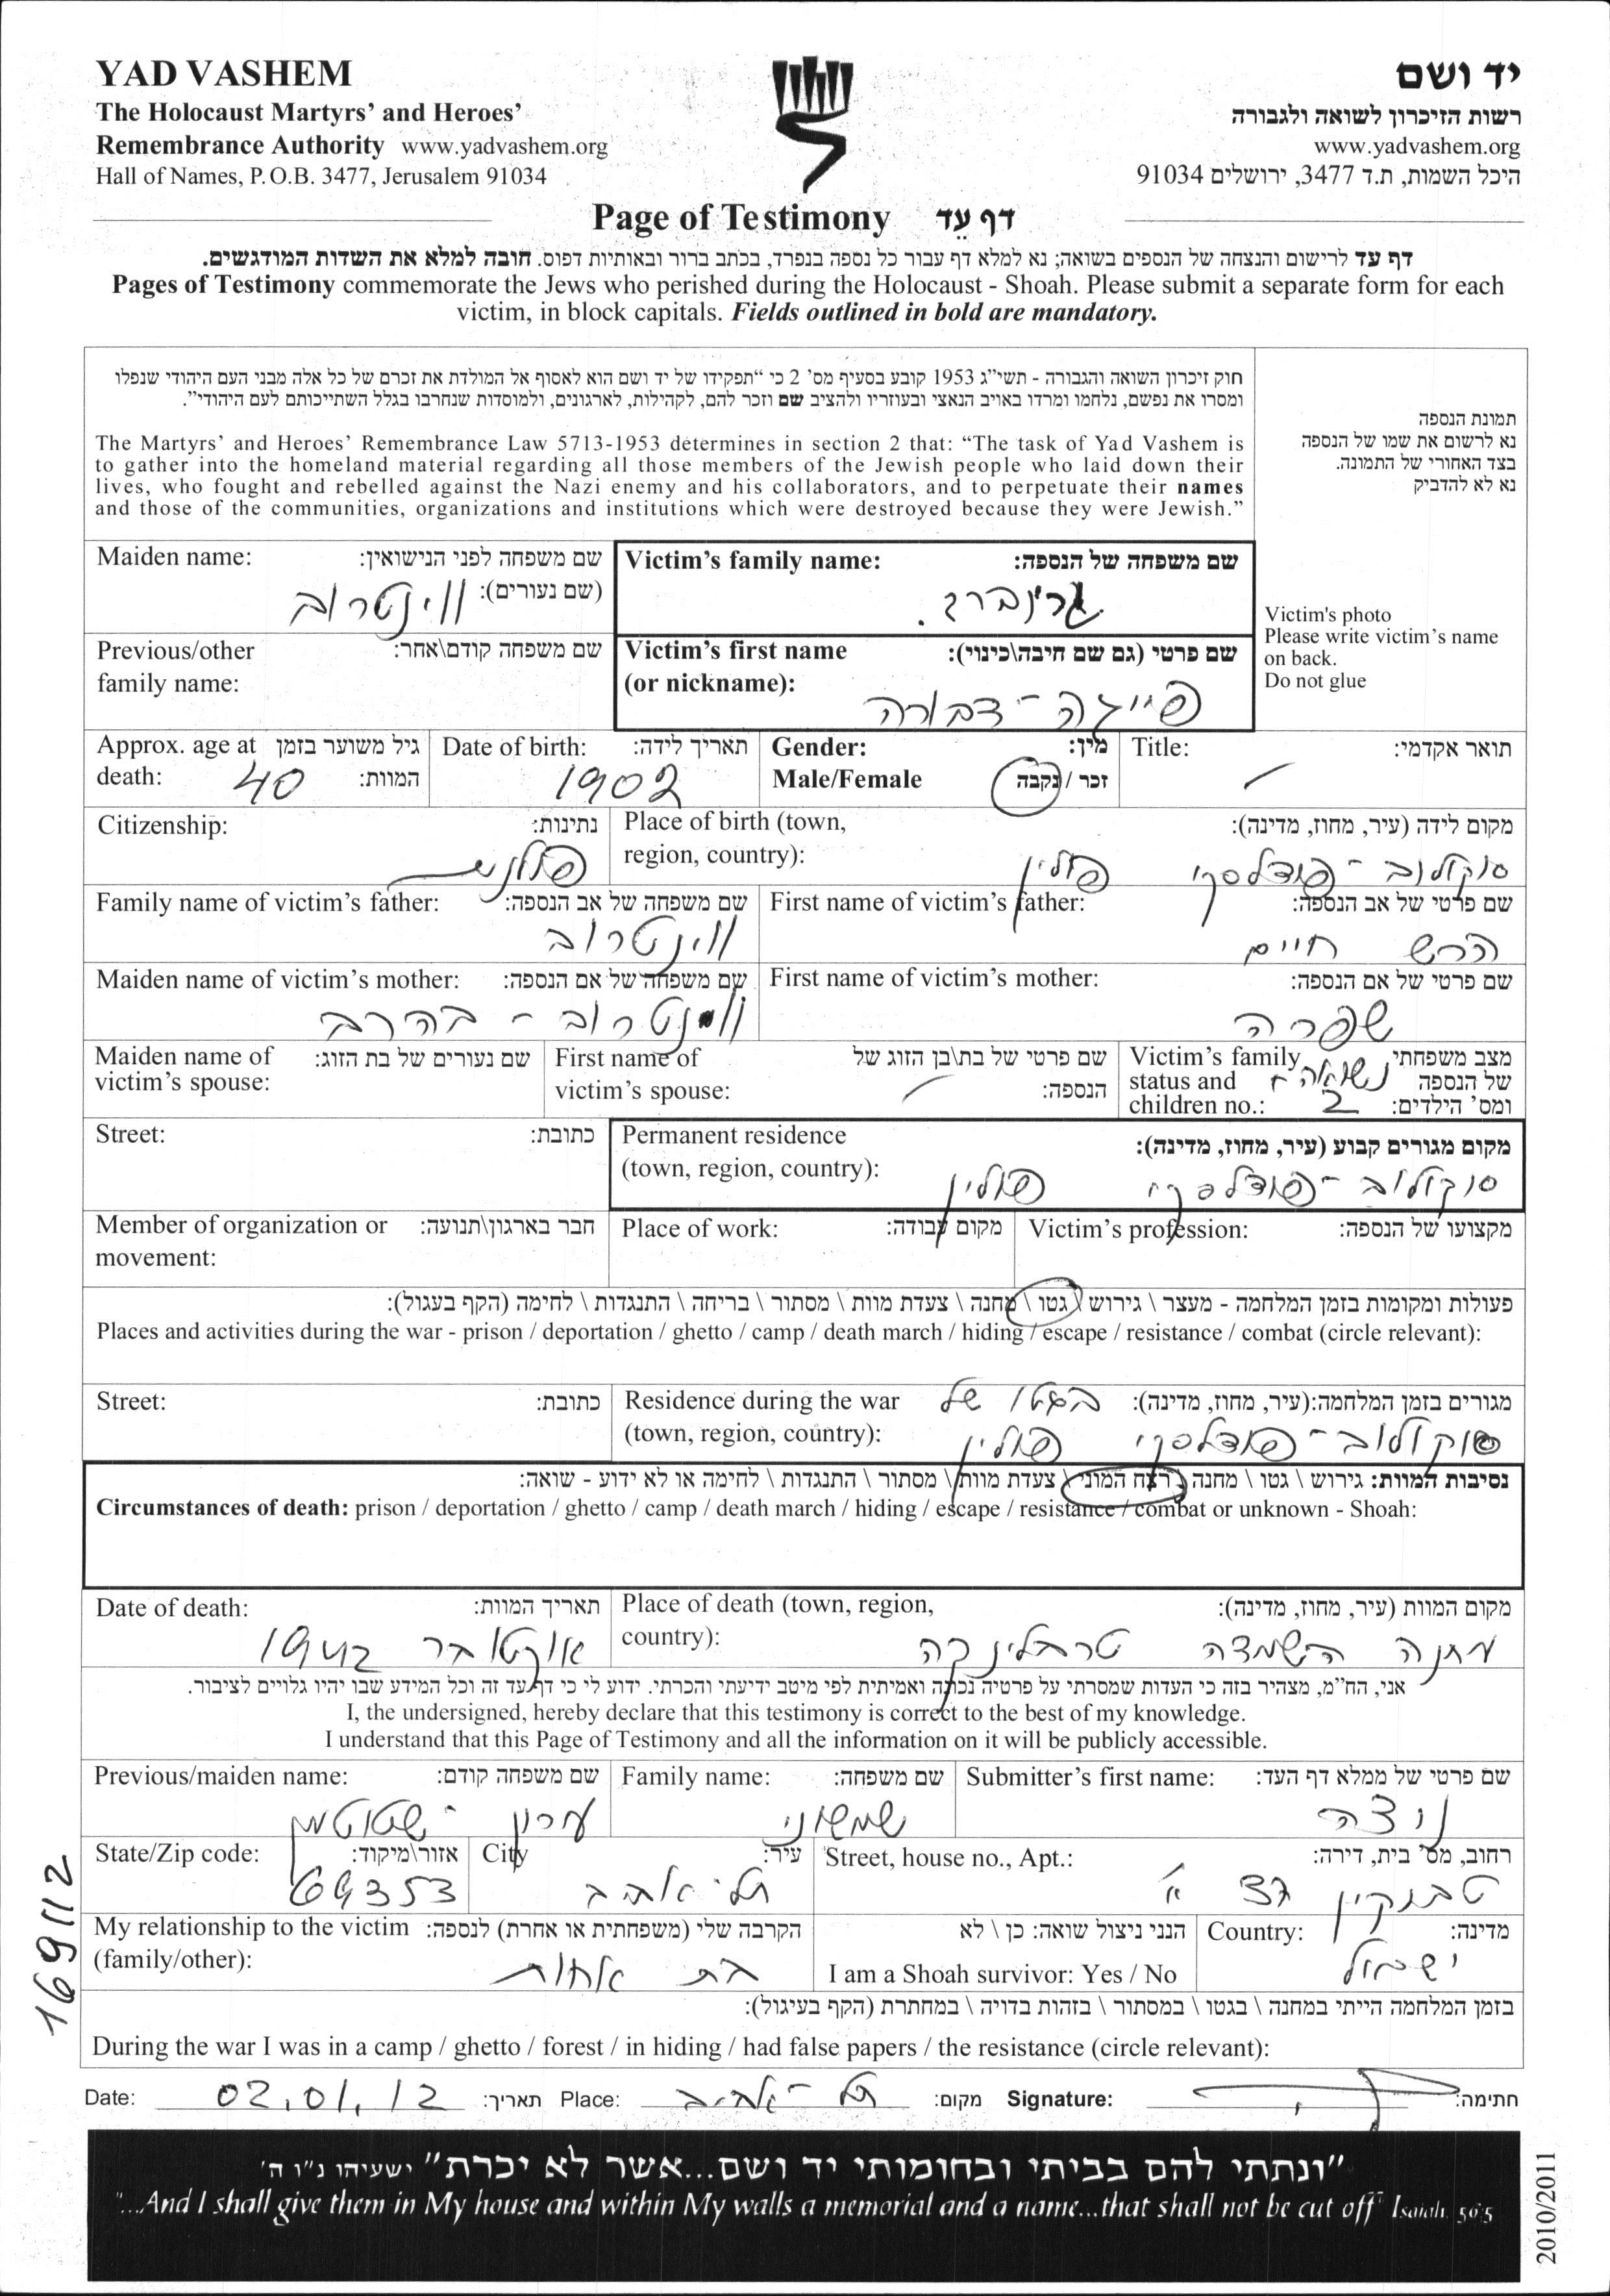 YAD VASHEM
The Holocaust Martyrs' and Heroes'
Remembrance Authority www.yadvashem.org
Hall of Names, P.O.B. 3477, Jerusalem 91034
יד ושם
רשות הזיכרון לשואה ולגבורה
www.yadvashem.org
היכל השמות, ת.ד 3477, ירושלים 91034
Page of Testimony דף עֵד
דף עד לרישום והנצחה של הנספים בשואה; נא למלא דף עבור כל נספה בנפרד, בכתב ברור ובאותיות דפוס. חובה למלא את השדות המודגשים.
Pages of Testimony commemorate the Jews who perished during the Holocaust - Shoah. Please submit a separate form for each
victim, in block capitals. Fields outlined in bold are mandatory.
חוק זיכרון השואה והגבורה - תשי"ג 1953 קובע בסעיף מס' 2 כי "תפקידו של יד ושם הוא לאסוף אל המולדת את זכרם של כל אלה מבני העם היהודי שנפלו
ומסרו את נפשם, נלחמו ומרדו באויב הנאצי ובעוזריו ולהציב שם וזכר להם, לקהילות, לארגונים, ולמוסדות שנחרבו בגלל השתייכותם לעם היהודי".
The Martyrs' and Heroes' Remembrance Law 5713-1953 determines in section 2 that: "The task of Yad Vashem is
to gather into the homeland material regarding all those members of the Jewish people who laid down their
lives, who fought and rebelled against the Nazi enemy and his collaborators, and to perpetuate their names
and those of the communities, organizations and institutions which were destroyed because they were Jewish."
תמונת הנספה
נא לרשום את שמו של הנספה
בצד האחורי של התמונה.
נא לא להדביק
Victim's photo
Please write victim's name
on back.
Do not glue
Maiden name: שם משפחה לפני הנישואין:
(שם נעורים): ווינטרוב
Victim's family name: שם משפחה של הנספה:
גרינברג.
Previous/other שם משפחה קודם\אחר:
family name:
Victim's first name שם פרטי (גם שם חיבה\כינוי):
(or nickname):
פייגה - דבורה
Approx. age at גיל משוער בזמן
death: 40 המוות:
Date of birth: תאריך לידה:
1902
Gender: מין:
Male/Female זכר / נקבה
Title: תואר אקדמי:
Citizenship: נתינות:
פולנית
Place of birth (town, מקום לידה (עיר, מחוז, מדינה):
region, country): סוקולוב - פודלסקי פולין
Family name of victim's father: שם משפחה של אב הנספה:
ווינטרוב
First name of victim's father: שם פרטי של אב הנספה:
הרש חיים
Maiden name of victim's mother: שם משפחה של אם הנספה:
ווינטרוב - בהרב
First name of victim's mother: שם פרטי של אם הנספה:
שפרה
Maiden name of שם נעורים של בת הזוג:
victim's spouse:
First name of שם פרטי של בת\בן הזוג של
victim's spouse: הנספה:
Victim's family מצב משפחתי
status and נשואה + של הנספה
children no.: 2 ומס' הילדים:
Street: כתובת:
Permanent residence מקום מגורים קבוע (עיר, מחוז, מדינה):
(town, region, country): סוקולוב - פודלסקי פולין
Member of organization or חבר בארגון\תנועה:
movement:
Place of work: מקום עבודה:
Victim's profession: מקצועו של הנספה:
פעולות ומקומות בזמן המלחמה - מעצר \ גירוש \ גטו \ מחנה \ צעדת מוות \ מסתור \ בריחה \ התנגדות \ לחימה (הקף בעגול):
Places and activities during the war - prison / deportation / ghetto / camp / death march / hiding / escape / resistance / combat (circle relevant):
Street: כתובת:
Residence during the war מגורים בזמן המלחמה:(עיר, מחוז, מדינה): בגטו של
(town, region, country): סוקולוב - פודלסקי פולין
נסיבות המוות: גירוש \ גטו \ מחנה \ רצח המוני \ צעדת מוות \ מסתור \ התנגדות \ לחימה או לא ידוע - שואה:
Circumstances of death: prison / deportation / ghetto / camp / death march / hiding / escape / resistance / combat or unknown - Shoah:
Date of death: תאריך המוות:
אוקטובר 1942
Place of death (town, region, מקום המוות (עיר, מחוז, מדינה):
country): מחנה השמדה טרבלינקה
אני, הח"מ, מצהיר בזה כי העדות שמסרתי על פרטיה נכונה ואמיתית לפי מיטב ידיעתי והכרתי. ידוע לי כי דף עד זה וכל המידע שבו יהיו גלויים לציבור.
I, the undersigned, hereby declare that this testimony is correct to the best of my knowledge.
I understand that this Page of Testimony and all the information on it will be publicly accessible.
Previous/maiden name: שם משפחה קודם:
Family name: שם משפחה:
שמשוני
Submitter's first name: שם פרטי של ממלא דף העד:
ניצה
State/Zip code: אזור\מיקוד:
69353
City עיר:
תל אביב
Street, house no., Apt.: רחוב, מס' בית, דירה:
טבנקין 37 א'
My relationship to the victim הקרבה שלי (משפחתית או אחרת) לנספה:
(family/other): בת אחות
הנני ניצול שואה: כן \ לא
I am a Shoah survivor: Yes / No
Country: מדינה:
ישראל
בזמן המלחמה הייתי במחנה \ בגטו \ במסתור \ בזהות בדויה \ במחתרת (הקף בעיגול):
During the war I was in a camp / ghetto / forest / in hiding / had false papers / the resistance (circle relevant):
Date: 02.01.12 תאריך: Place: תל - אביב מקום: Signature: חתימה:
"ונתתי להם בביתי ובחומותי יד ושם...אשר לא יכרת" ישעיהו נ"ו ה'
"...And I shall give them in My house and within My walls a memorial and a name...that shall not be cut off" Isaiah 56:5
169112
2010/2011